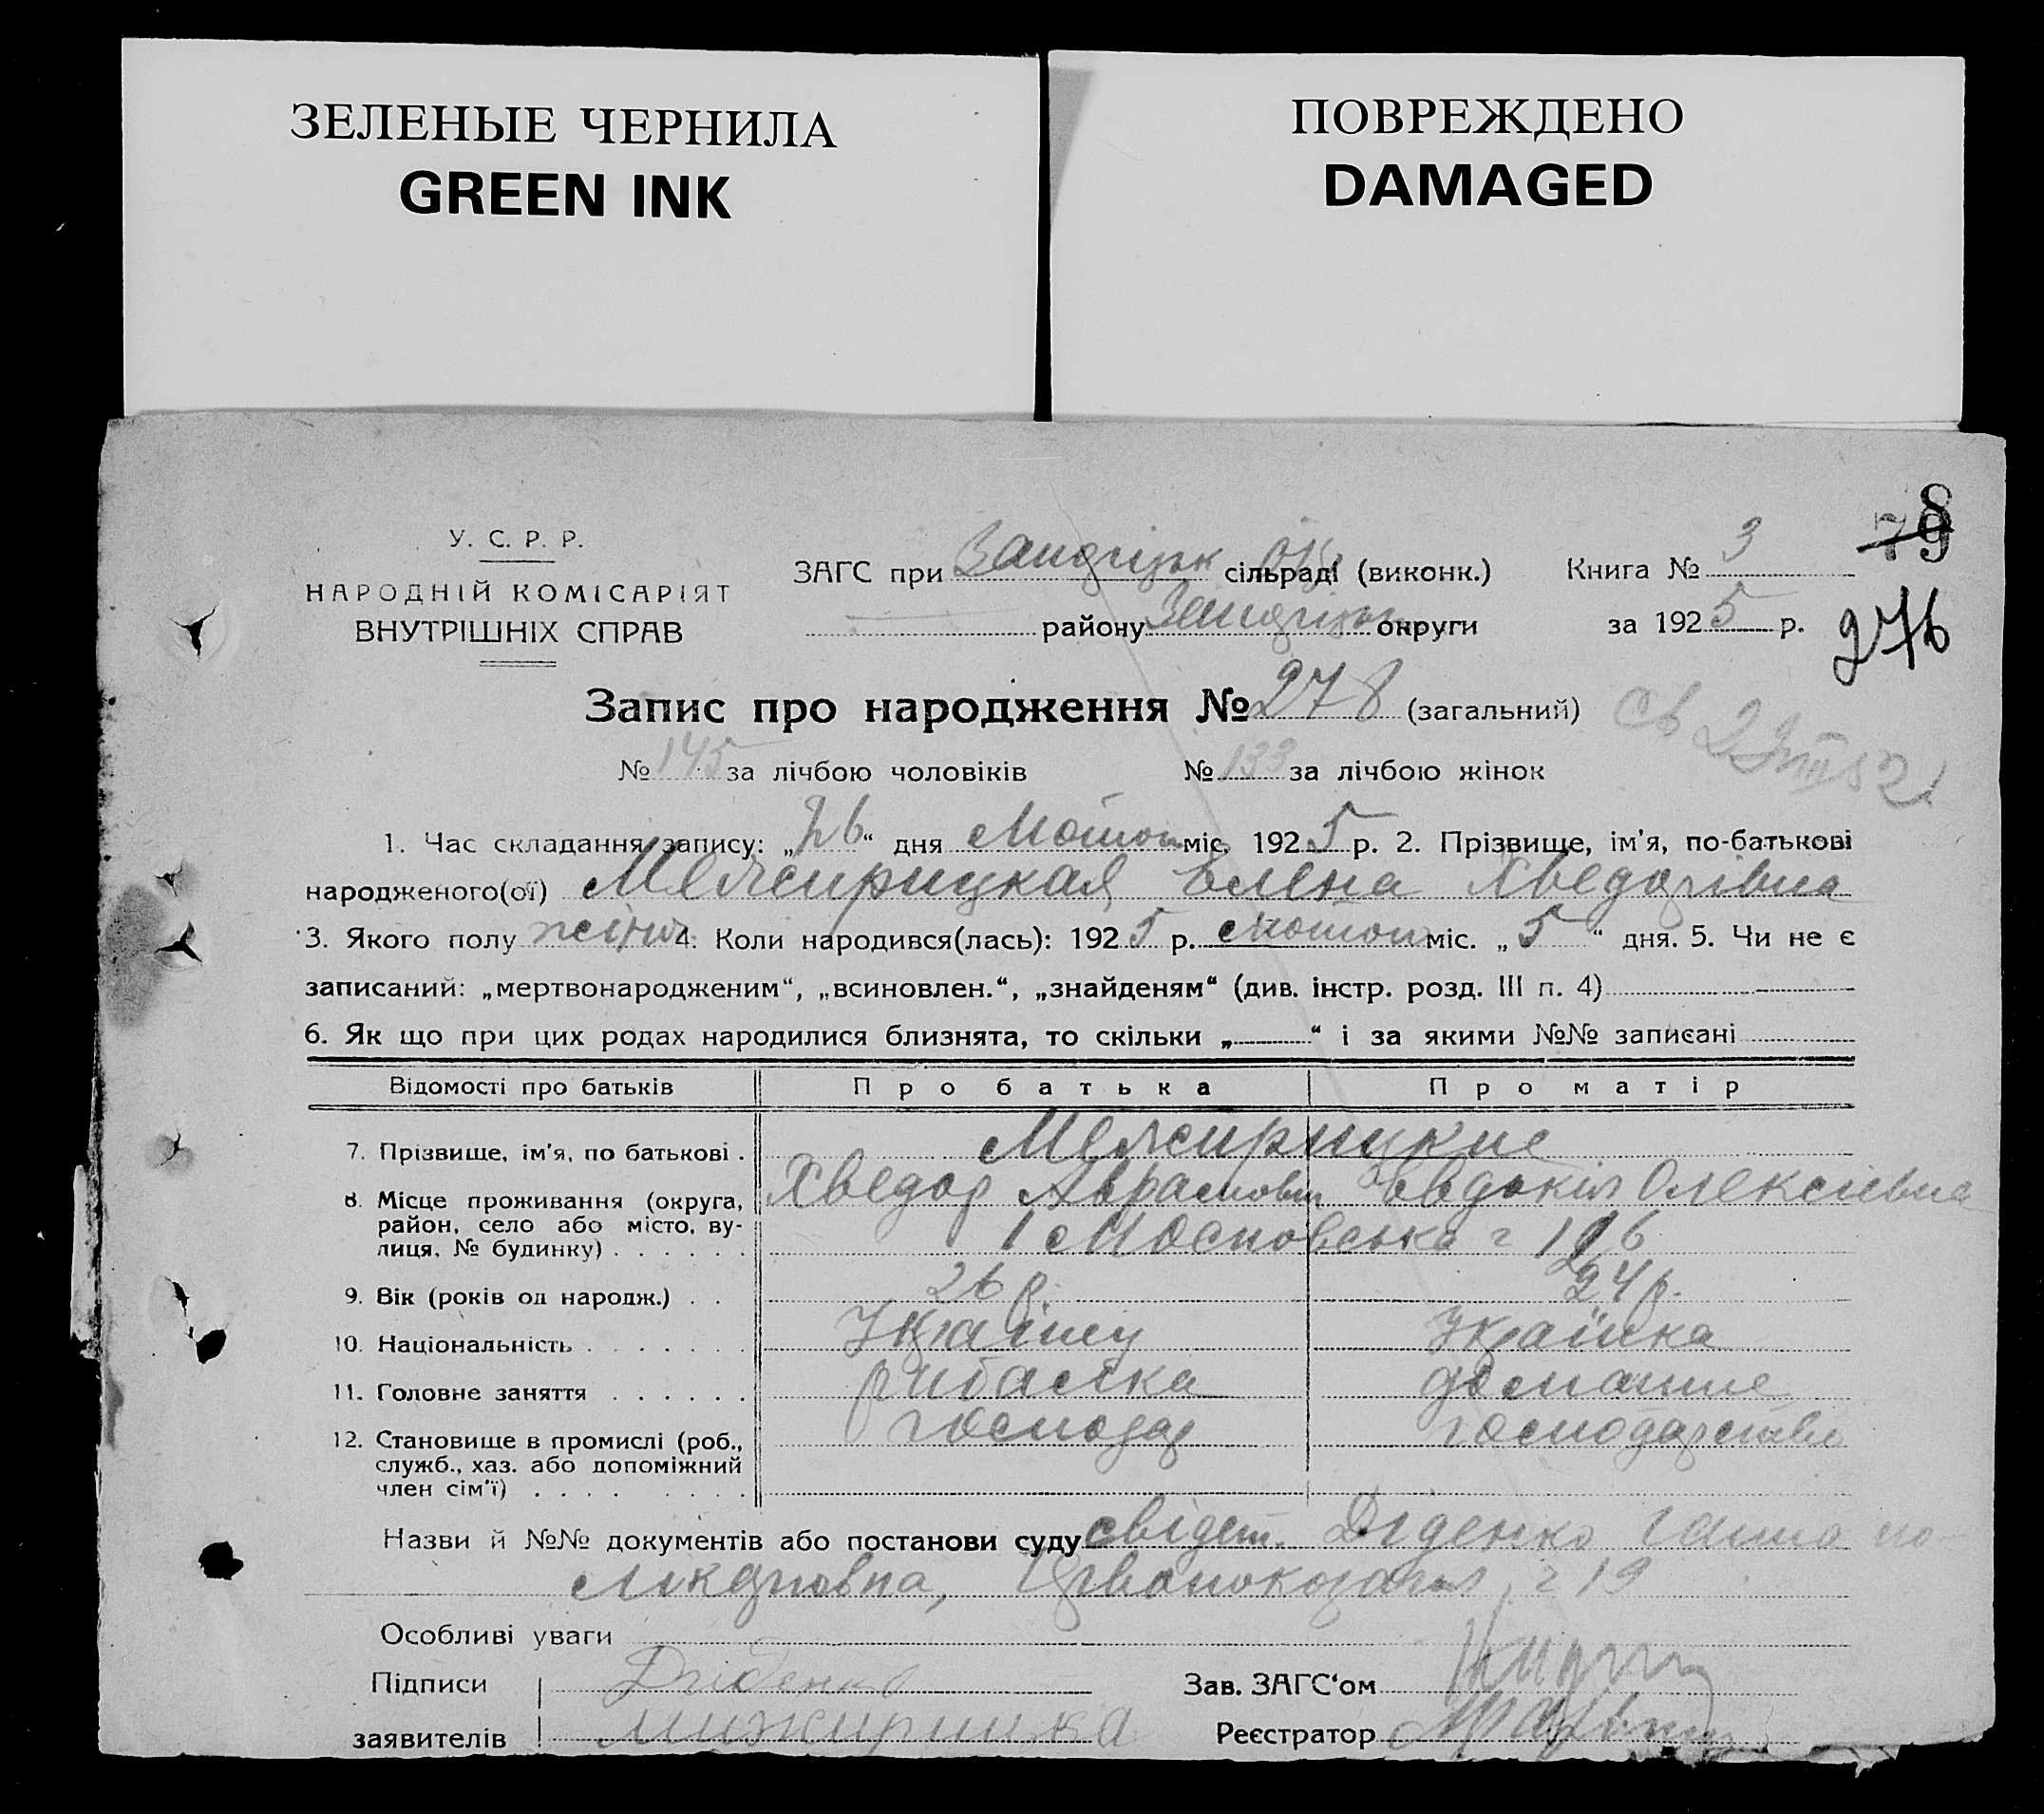 ЗЕЛЕНЫЕ ЧЕРНИЛА
GREEN INK
ПОВРЕЖДЕНО
DAMAGED
8
79
У. С. Р. Р.
НАРОДНІЙ КОМІСАРІЯТ
ВНУТРІШНІХ СПРАВ
ЗАГС при сільраді (виконк.) Книга № 3
району округи за 1925 р.
276
Запис про народження № 278 (загальний)
№ 145 за лічбою чоловіків № 133 за лічбою жінок
1. Час складання запису: „26“ дня міс. 1925 р. 2. Прізвище, ім'я, по-батькові
народженого(ої) Межирицкая Елена Хведорівна
3. Якого полу жіноч 4. Коли народився(лась): 1925 р. міс. „5“ дня. 5. Чи не є
записаний: „мертвонародженим“, „всиновлен.“, „знайденям“ (див. інстр. розд. III п. 4)
6. Як що при цих родах народилися близнята, то скільки „ “ і за якими №№ записані
Відомості про батьків Про батька Про матір
7. Прізвище, ім'я, по батькові . Межирицкие
Хведор Абрамович Евдокія Олексіевна
8. Місце проживання (округа,
район, село або місто, ву-
лиця, № будинку) . . . . . .
9. Вік (років од народж.) . . 26 р. 24 р.
10. Національність . . . . . . . Українц Українка
11. Головне заняття . . . . . . рибалка домашне
господар господарство
12. Становище в промислі (роб.,
служб., хаз. або допоміжний
член сім'ї) . . . . . . . .
Назви й №№ документів або постанови суду свідет. Діденко Ганна по-
ч 19
Особливі уваги
Підписи Діденко Зав. ЗАГС'ом
заявителів Реєстратор